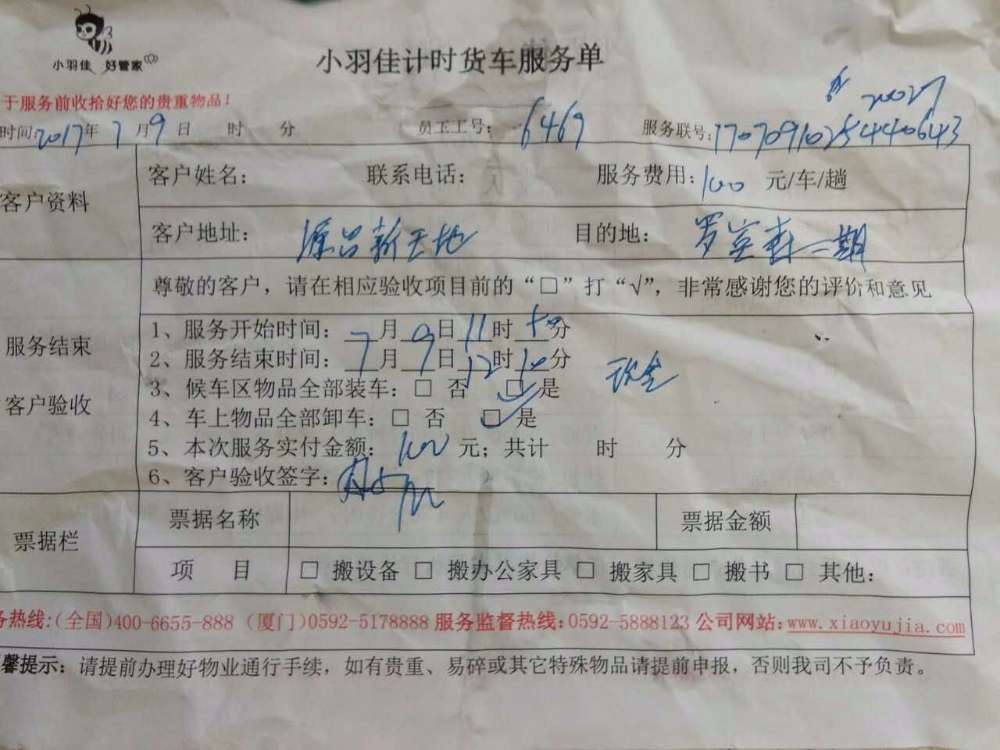 小羽佳 好管家
小羽佳计时货车服务单
于服务前收拾好您的贵重物品!
20027
时间:2017年7月9日 时 分 员工工号: 6467 服务联号:170709102544440643
客户资料
客户姓名: 联系电话: 服务费用:100 元/车/趟
客户地址: 源昌新天地 目的地: 一期
尊敬的客户，请在相应验收项目前的“□”打“√”，非常感谢您的评价和意见
服务结束
客户验收
1、服务开始时间: 7月9日11时50分
2、服务结束时间: 7月9日12时10分
3、候车区物品全部装车:□ 否 □ 是 现金
4、车上物品全部卸车:□ 否 □ 是
5、本次服务实付金额: 100 元；共计 时 分
6、客户验收签字:
票据栏
票据名称 票据金额
项 目 □ 搬设备 □ 搬办公家具 □ 搬家具 □ 搬书 □ 其他:
务热线:(全国)400-6655-888 (厦门)0592-5178888 服务监督热线:0592-5888123 公司网站:www.xiaoyujia.com
馨提示: 请提前办理好物业通行手续，如有贵重、易碎或其它特殊物品请提前申报，否则我司不予负责。